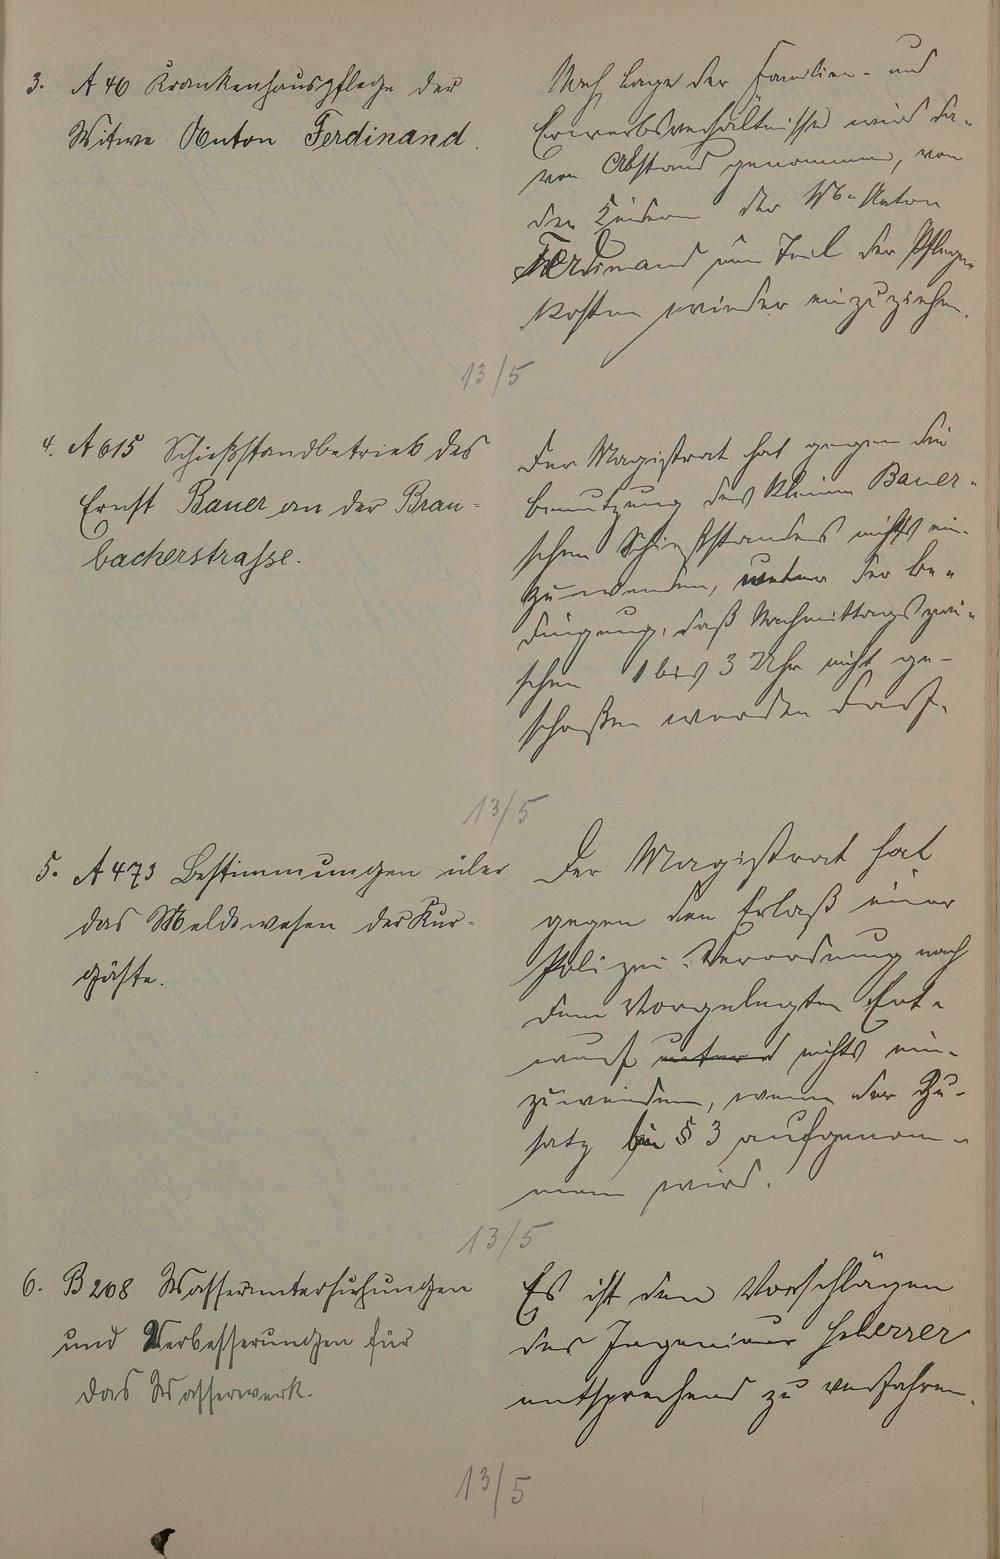 3. A 46 Krankenhauspflege der
Witwe Anton Ferdinand.
Nach Lage der Familien- und
Erwerbsverhältnisse wird da-
von Abstand genommen, von
den Kindern der Ww. Anton
Ferdinand zum Teil der Pflege-
kosten wieder einzuziehen.
13/5
4. A 615 Schießstandbetrieb des
Ernst Bauer an der Brau-
bacherstrasse.
Der Magistrat hat gegen die
Benutzung des kleinen Bauer-
schen Schießstandes nichts ein-
zuwenden, unter der Be-
dingung, daß Nachmittags zwi-
schen 1 bis 3 Uhr nicht ge-
schoßen werden darf.
13/5
5. A 473 Bestimmungen über
das Meldewesen der Kur-
gäste.
Der Magistrat hat
gegen den Erlaß einer
Polizei-Verordnung nach
dem vorgelegten Ent-
wurf nichts ein-
zuwenden, wenn der Zu-
satz § 3 aufgenom-
men wird.
13/5
6. B 208 Wasseruntersuchungen
und Verbesserungen für
das Wasserwerk.
Es ist den Vorschlägen
des Ingenieur Scherrer
entsprechend zu verfahren.
13/5